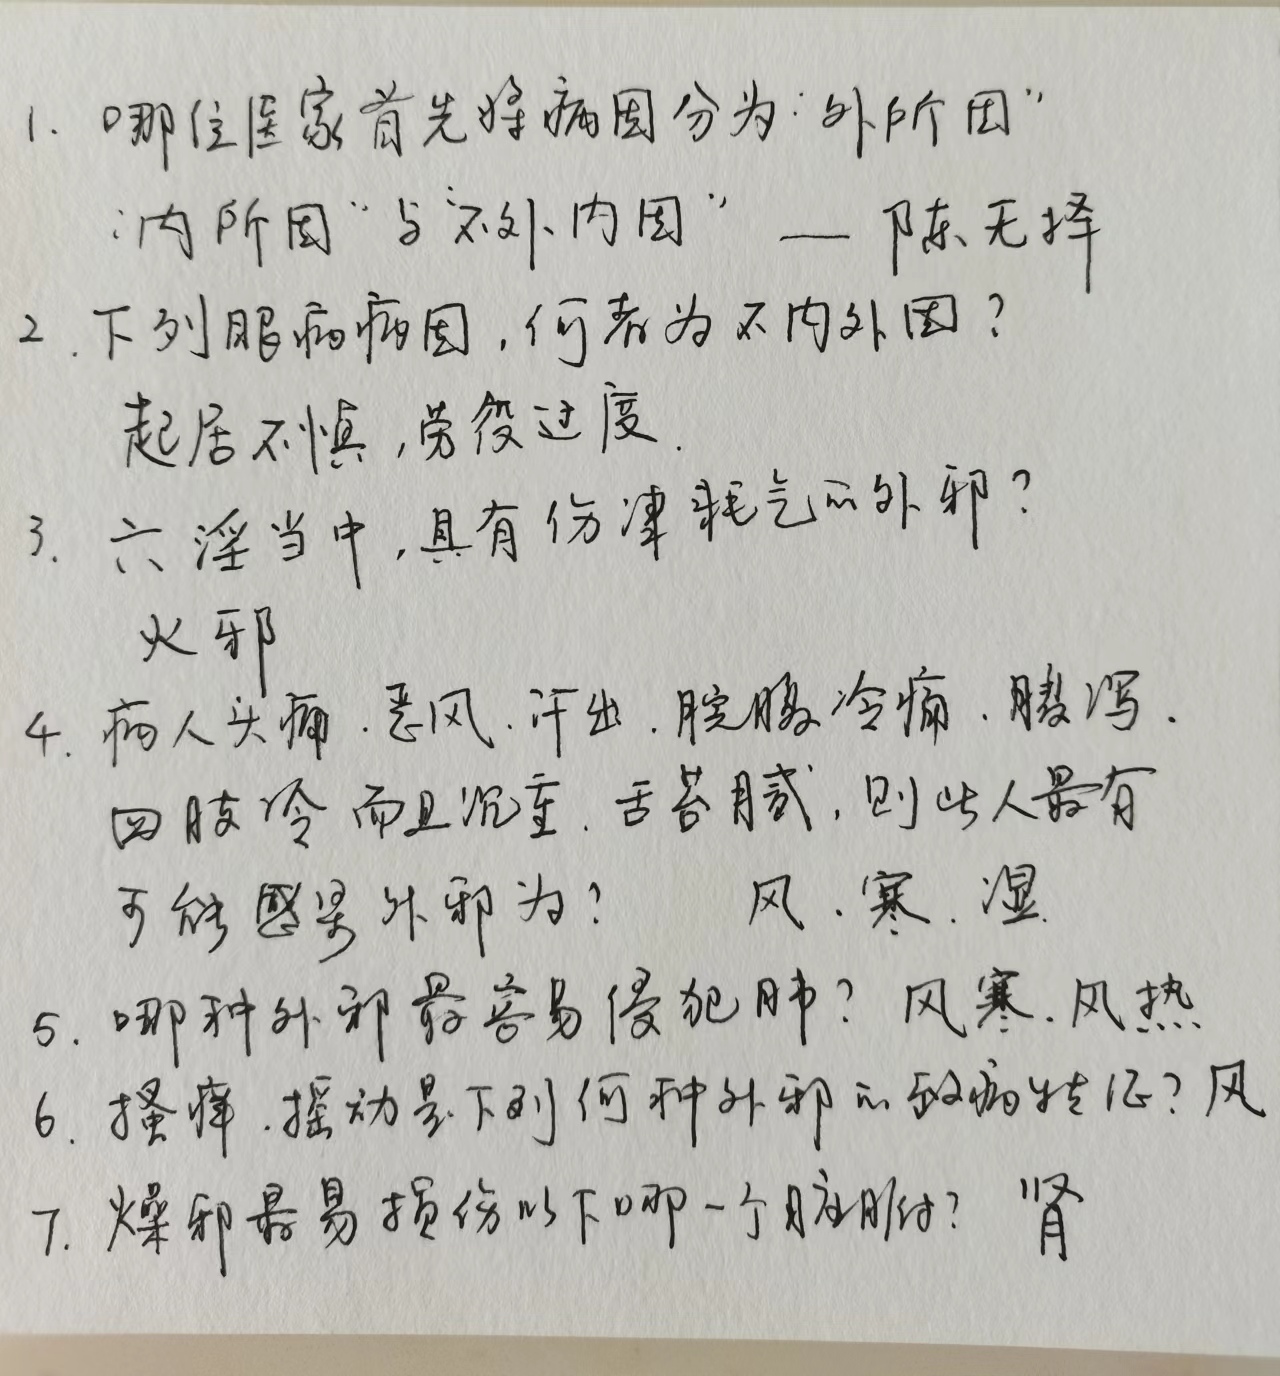 1. 哪位医家首先将病因分为“外所因”
“内所因”与“不外内因” — 陈无择
2. 下列眼病病因,何者为不内外因?
起居不慎,劳役过度.
3. 六淫当中,具有伤津耗气的外邪?
火邪
4. 病人头痛.恶风.汗出.脘腹冷痛.腹泻.
四肢冷而且沉重.舌苔腻,则此人最有
可能感染外邪为? 风.寒.湿.
5. 哪种外邪最容易侵犯肺? 风寒.风热
6. 搔痒.摇动是下列何种外邪的致病特征? 风
7. 燥邪最易损伤以下哪一个脏腑? 肾